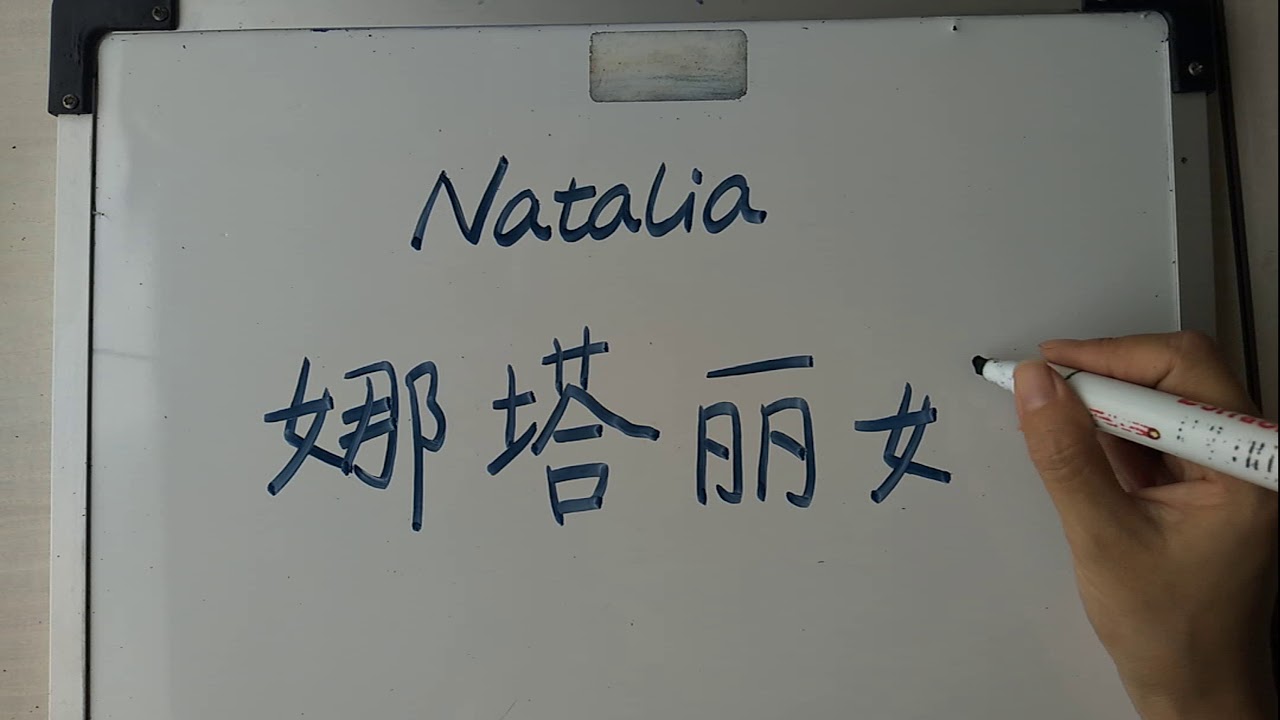 Natalia
娜塔丽女